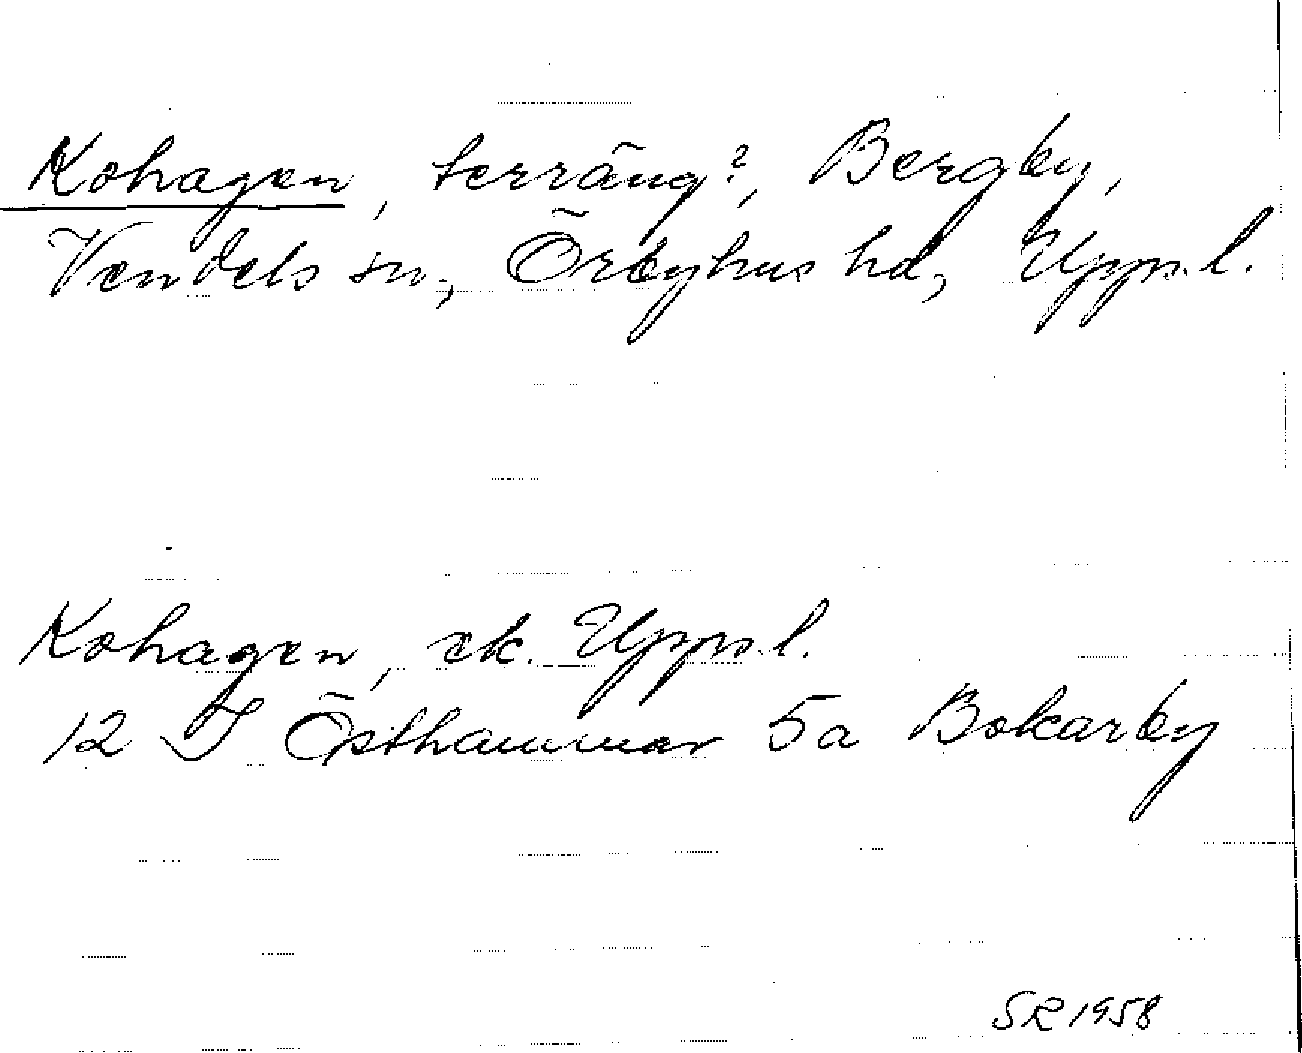 Kohagen, terräng?, Bergby,
Vendels sn, Örbyhus hd, Uppl.
Kohagen, ek. Uppl.
12 I Östhammar 5a Bokarby
SR 1958